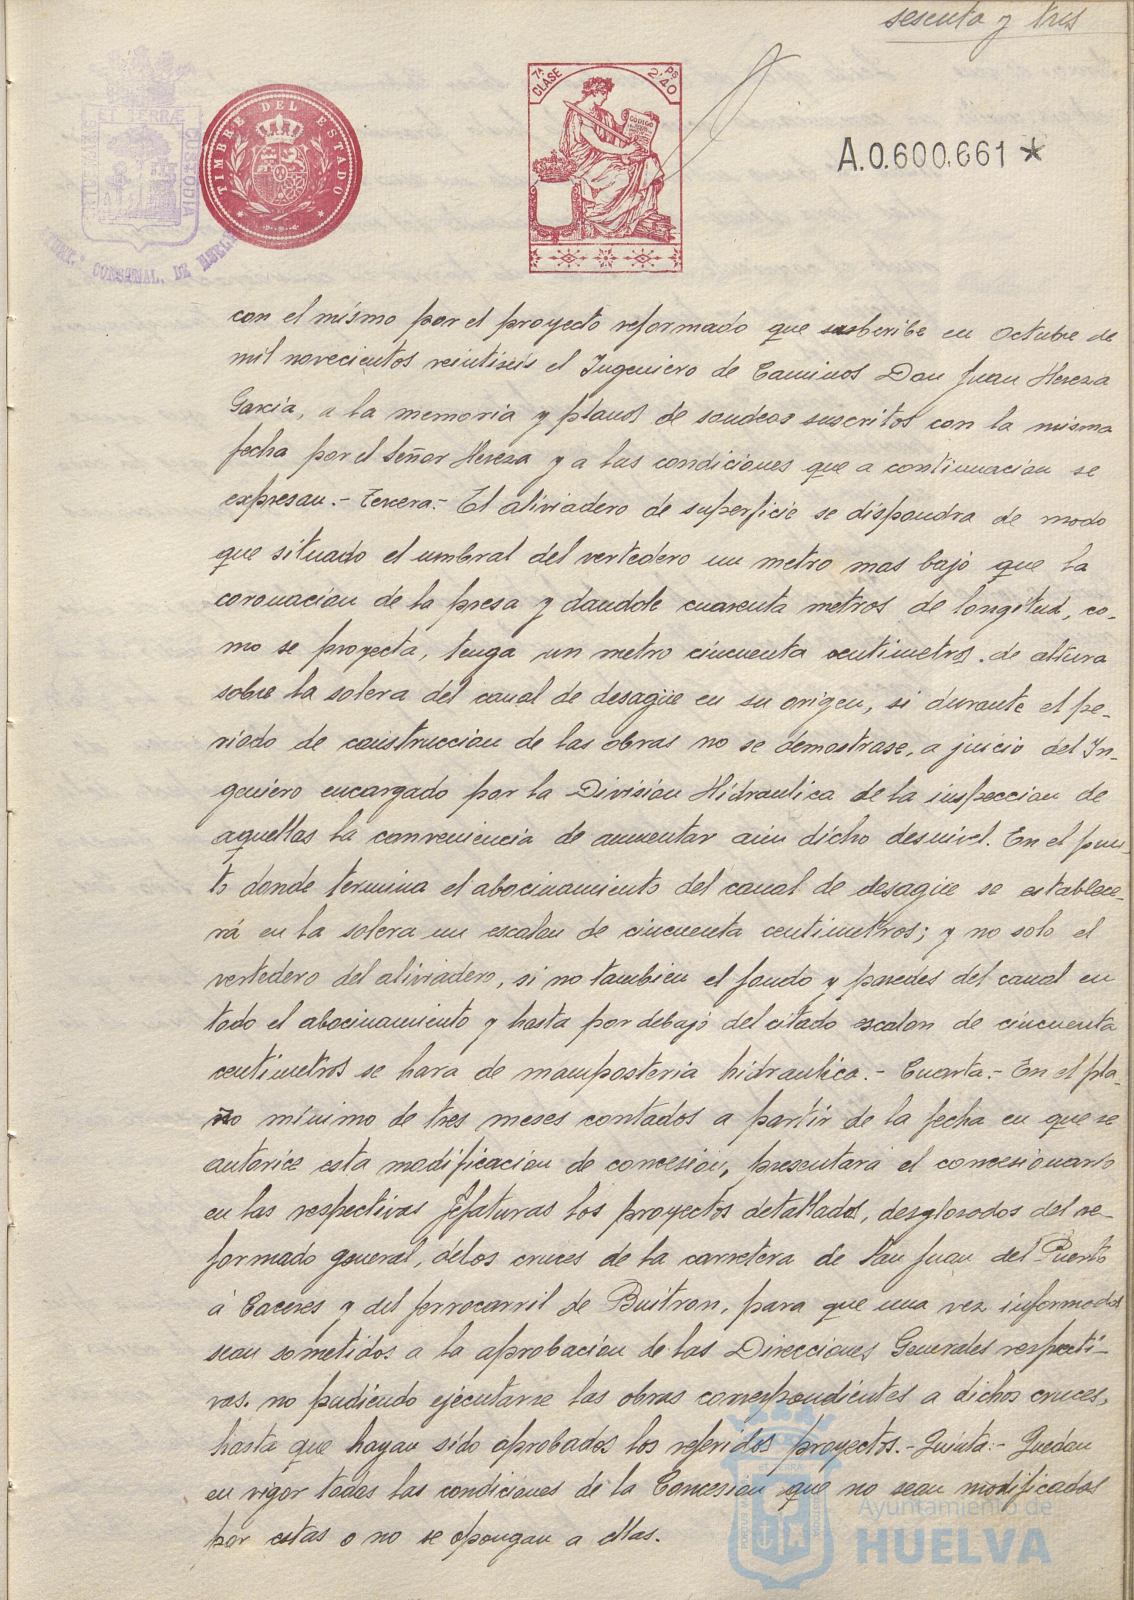 sesenta y tres
7ª CLASE
PS 2'40
CODIGO
TIMBRE DEL ESTADO
ET TERRÆ CUSTODIA
CONSTNAL. DE HUELVA
A.0.600,661 *
con el mismo por el proyecto reformado que suscribe en Octubre de
mil novecientos veintiseis el Ingeniero de Caminos Don Juan Hereza
Garcia, a la memoria y planos de sondeos suscritos con la misma
fecha por el Señor Hereza y a las condiciones que a continuacion se
expresan.- Tercera.- El aliviadero de superficie se dispondra de modo
que situado el umbral del vertedero un metro mas bajo que la
coronacion de la presa y dandole cuarenta metros de longitud, co-
mo se proyecta, tenga un metro cincuenta centimetros de altura
sobre la solera del canal de desagüe en su origen, si durante el pe-
riodo de construccion de las obras no se demostrase, a juicio del In-
geniero encargado por la División Hidraulica de la inspeccion de
aquellas la conveniencia de aumentar aún dicho desnivel. En el pun-
to donde termina el abocinamiento del canal de desagüe se establece-
rá en la solera un escalon de cincuenta centimetros; y no solo el
vertedero del aliviadero, si no tambien el fondo y paredes del canal en
todo el abocinamiento y hasta por debajo del citado escalon de cincuenta
centimetros se hara de mamposteria hidraulica.- Cuarta.- En el pla-
zo mínimo de tres meses contados a partir de la fecha en que se
autorice esta modificacion de concesión, presentará el concesionario
en las respectivas Jefaturas los proyectos detallados, desglosados del re-
formado general, delos cruces de la carretera de San Juan del Puerto
á Caceres y del ferrocarril de Buitron, para que una vez informados
sean sometidos a la aprobación de las Direcciones Generales respecti-
vas. no pudiendo ejecutarse las obras correspondientes a dichos cruces,
hasta que hayan sido aprobados los referidos proyectos.- Quinta.- Quedan
en vigor todas las condiciones de la Concesion que no sean modificadas
por estas o no se opongan a ellas.
Ayuntamiento de
HUELVA